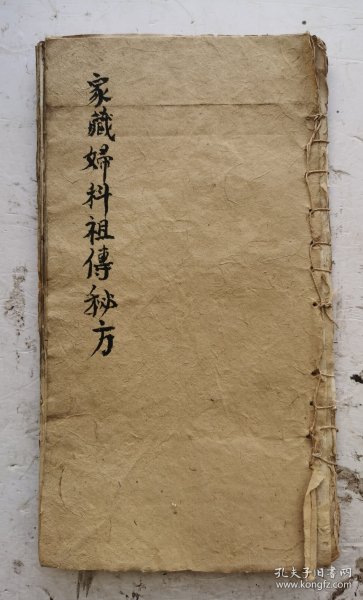 家藏婦科祖傳秘方
孔夫子旧书网
www.kongfz.com